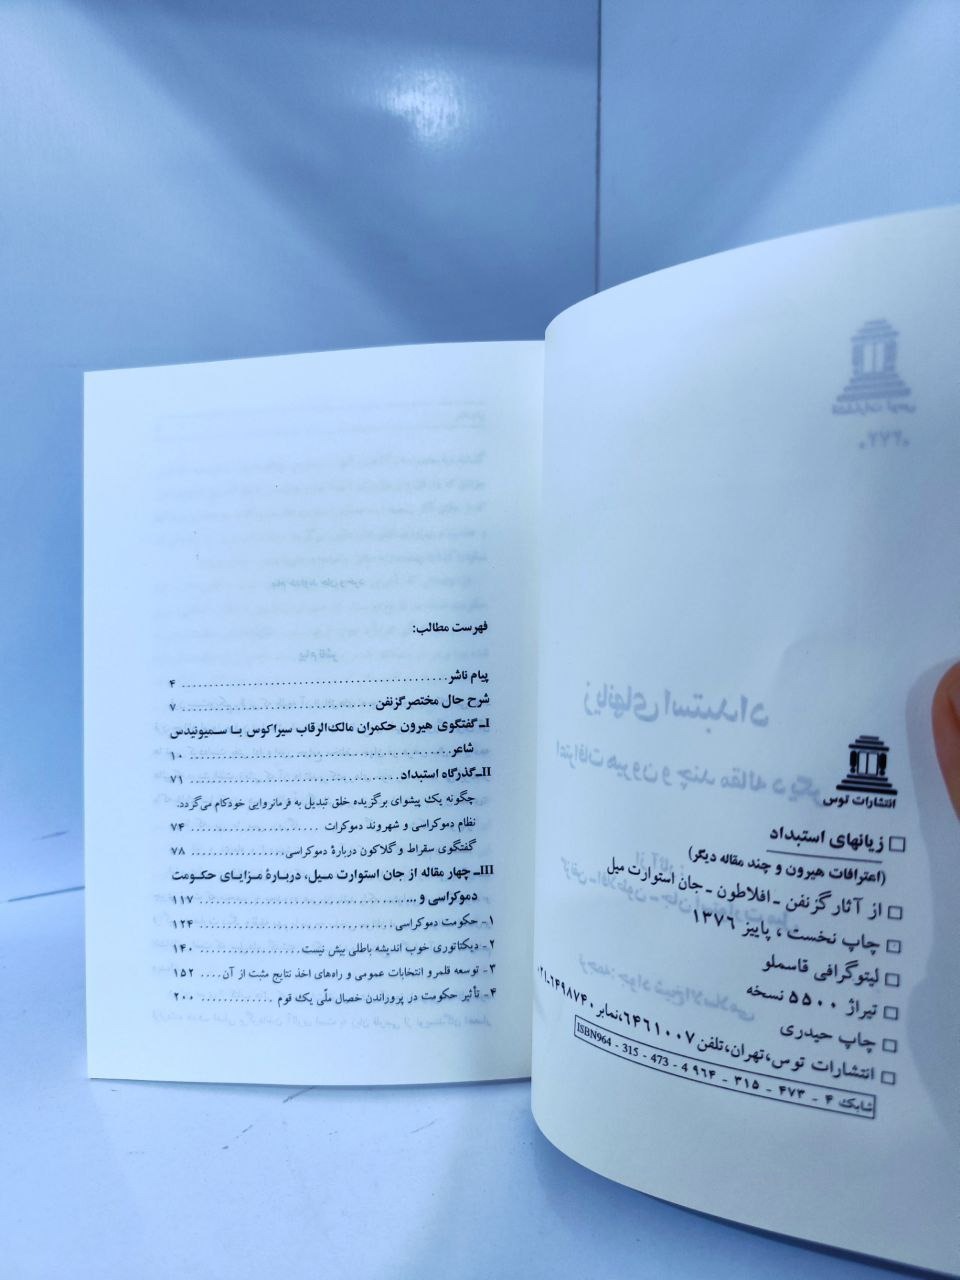 انتشارات توس
زیانهای استبداد
(اعترافات هیرون و چند مقاله دیگر)
از آثار گزنفن ـ افلاطون ـ جان استوارت میل
چاپ نخست، پاییز ۱۳۷۶
لیتوگرافی قاسملو
تیراژ ۵۵۰۰ نسخه
چاپ حیدری
انتشارات توس، تهران، تلفن ۶۴۶۱۰۰۷، نمابر ۶۴۹۸۷۴۰-۰۲۱
شابک ۴ - ۴۷۳ - ۳۱۵ - ۹۶۴ ISBN964 - 315 - 473 - 4
فهرست مطالب:
پیام ناشر ۴
شرح حال مختصر گزنفن ۷
I ـ گفتگوی هیرون حکمران مالک‌الرقاب سیراکوس با سمیونیدس
شاعر ۱۰
II ـ گذرگاه استبداد ۷۱
چگونه یک پیشوای برگزیده خلق تبدیل به فرمانروایی خودکام می‌گردد.
نظام دموکراسی و شهروند دموکرات ۷۴
گفتگوی سقراط و گلاکون دربارهٔ دموکراسی ۷۸
III ـ چهار مقاله از جان استوارت میل، دربارهٔ مزایای حکومت
دموکراسی و ... ۱۱۷
۱- حکومت دموکراسی ۱۲۴
۲- دیکتاتوری خوب اندیشه باطلی بیش نیست ۱۴۰
۳- توسعه قلمرو انتخابات عمومی و راه‌های اخذ نتایج مثبت از آن .... ۱۵۲
۴- تأثیر حکومت در پروراندن خصال ملّی یک قوم ۲۰۰